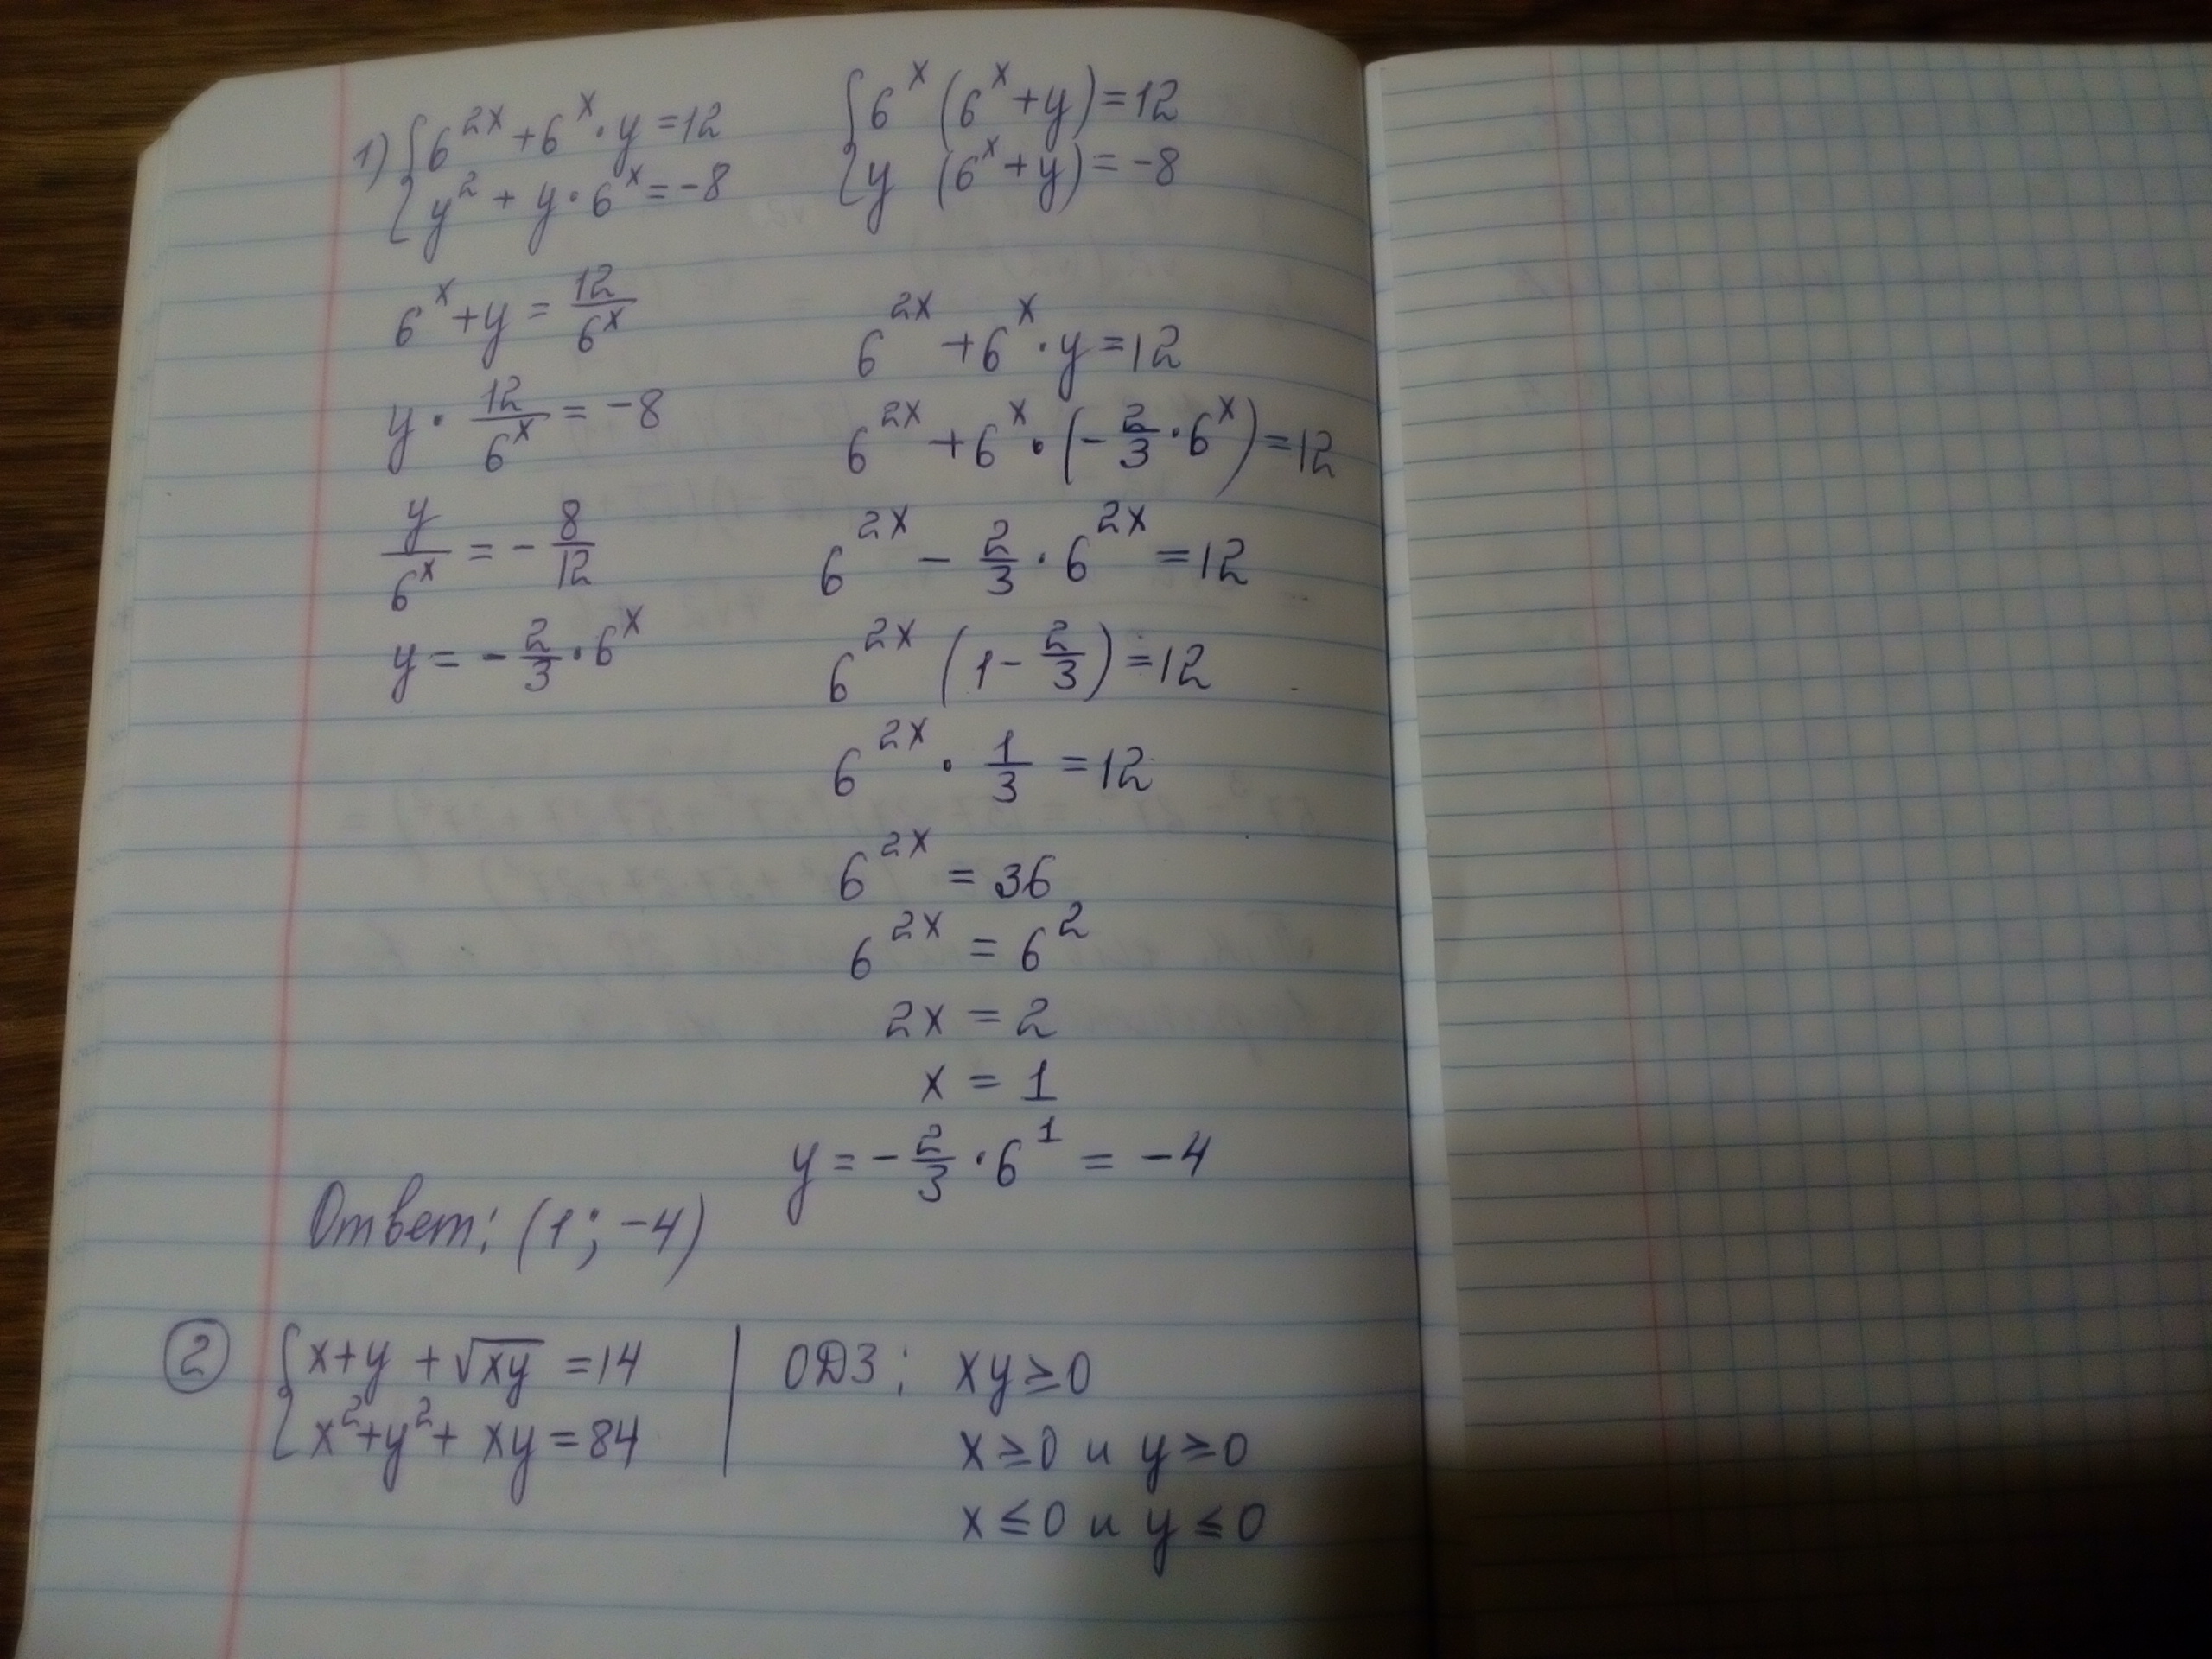 1) { 6^{2x} + 6^x · y = 12
y² + y · 6^x = -8
{ 6^x (6^x + y) = 12
y (6^x + y) = -8
6^x + y = 12/6^x
y · 12/6^x = -8
y/6^x = - 8/12
y = - 2/3 · 6^x
6^{2x} + 6^x · y = 12
6^{2x} + 6^x · (- 2/3 · 6^x) = 12
6^{2x} - 2/3 · 6^{2x} = 12
6^{2x} (1 - 2/3) = 12
6^{2x} · 1/3 = 12
6^{2x} = 36
6^{2x} = 6²
2x = 2
x = 1
y = - 2/3 · 6^1 = -4
Ответ: (1; -4)
② { x + y + √xy = 14
x² + y² + xy = 84
ОДЗ: xy ≥ 0
x ≥ 0 и y ≥ 0
x ≤ 0 и y ≤ 0